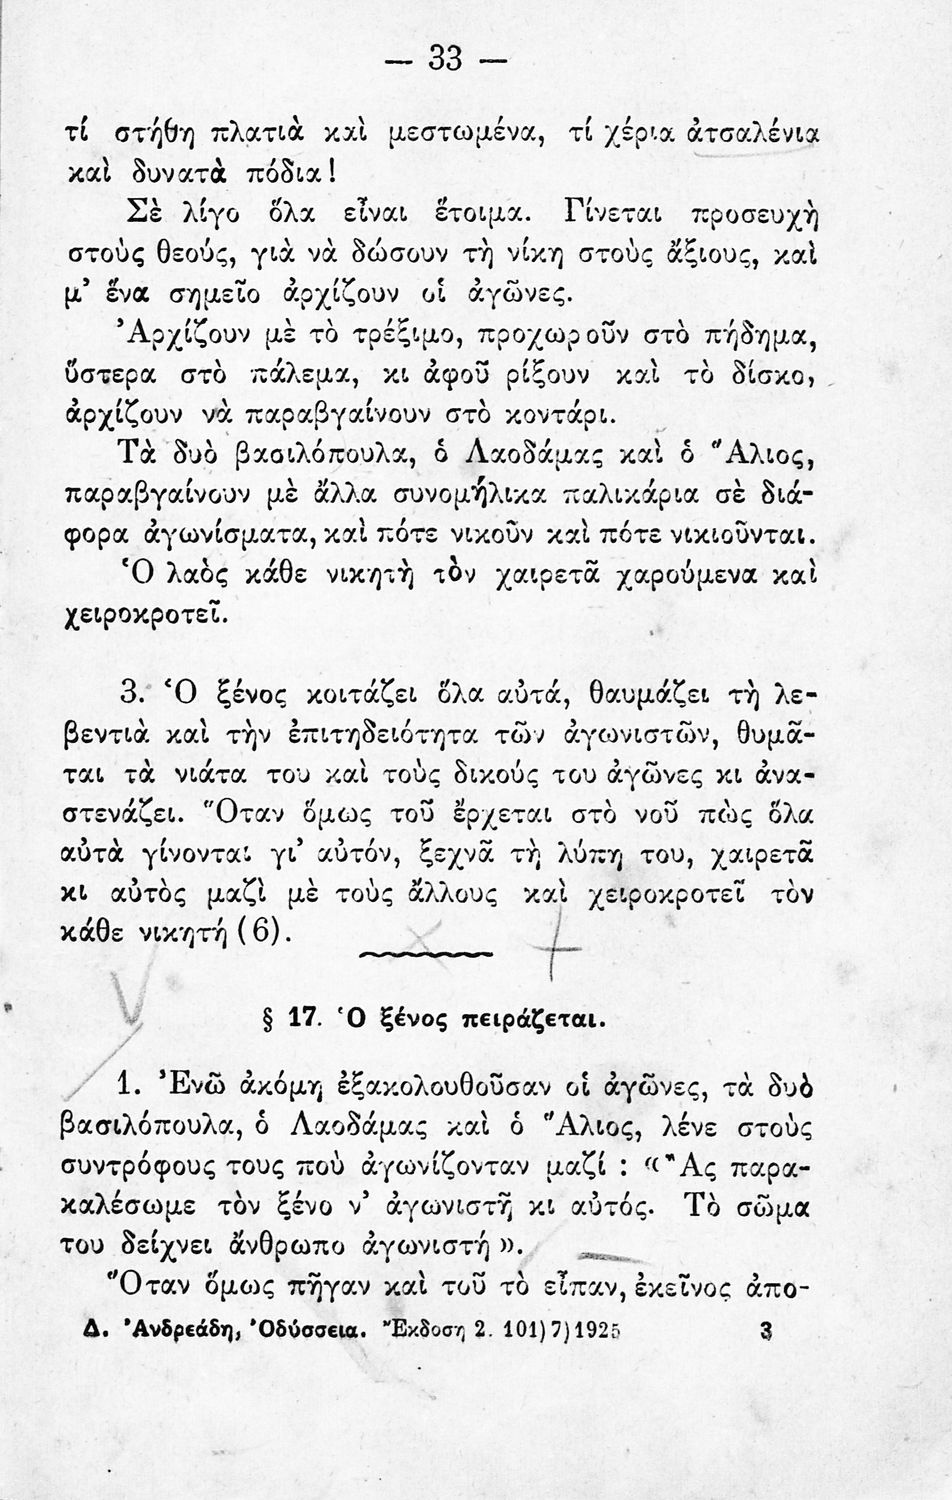 — 33 —
τί στήθη πλατιὰ καὶ μεστωμένα, τί χέρια ἀτσαλένια
καὶ δυνατὰ πόδια!
Σὲ λίγο ὅλα εἶναι ἕτοιμα. Γίνεται προσευχὴ
στοὺς θεούς, γιὰ νὰ δώσουν τὴ νίκη στοὺς ἄξιους, καὶ
μ’ ἕνα σημεῖο ἀρχίζουν οἱ ἀγῶνες.
Ἀρχίζουν μὲ τὸ τρέξιμο, προχωροῦν στὸ πήδημα,
ὕστερα στὸ πάλεμα, κι ἀφοῦ ρίξουν καὶ τὸ δίσκο,
ἀρχίζουν νὰ παραβγαίνουν στὸ κοντάρι.
Τὰ δυὸ βασιλόπουλα, ὁ Λαοδάμας καὶ ὁ Ἅλιος,
παραβγαίνουν μὲ ἄλλα συνομήλικα παλικάρια σὲ διά-
φορα ἀγωνίσματα, καὶ πότε νικοῦν καὶ πότε νικιοῦνται.
Ὁ λαὸς κάθε νικητὴ τὸν χαιρετᾶ χαρούμενα καὶ
χειροκροτεῖ.
3. Ὁ ξένος κοιτάζει ὅλα αὐτά, θαυμάζει τὴ λε-
βεντιὰ καὶ τὴν ἐπιτηδειότητα τῶν ἀγωνιστῶν, θυμᾶ-
ται τὰ νιάτα του καὶ τοὺς δικούς του ἀγῶνες κι ἀνα-
στενάζει. Ὅταν ὅμως τοῦ ἔρχεται στὸ νοῦ πὼς ὅλα
αὐτὰ γίνονται γι’ αὐτόν, ξεχνᾶ τὴ λύπη του, χαιρετᾶ
κι αὐτὸς μαζὶ μὲ τοὺς ἄλλους καὶ χειροκροτεῖ τὸν
κάθε νικητή (6).
§ 17. Ὁ ξένος πειράζεται.
1. Ἐνῶ ἀκόμη ἐξακολουθοῦσαν οἱ ἀγῶνες, τὰ δυὸ
βασιλόπουλα, ὁ Λαοδάμας καὶ ὁ Ἅλιος, λένε στοὺς
συντρόφους τους ποὺ ἀγωνίζονταν μαζί : «Ἂς παρα-
καλέσωμε τὸν ξένο ν’ ἀγωνιστῇ κι αὐτός. Τὸ σῶμα
του δείχνει ἄνθρωπο ἀγωνιστή».
Ὅταν ὅμως πῆγαν καὶ τοῦ τὸ εἶπαν, ἐκεῖνος ἀπο-
Δ. Ἀνδρεάδη, Ὀδύσσεια. Ἔκδοση 2. 101)7)1925 3